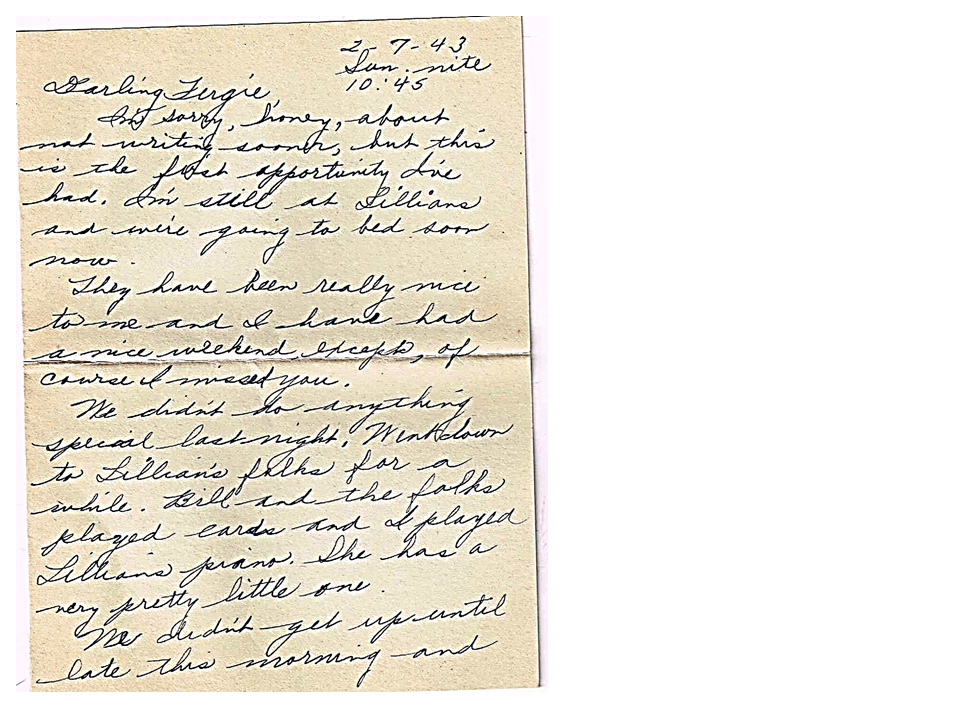 2-7-43
Sun. nite
10:45
Darling Fergie,
I'm sorry, honey, about
not writing sooner, but this
is the first opportunity I've
had. I'm still at Lillians
and we're going to bed soon
now.
They have been really nice
to me and I have had
a nice weekend except, of
course I missed you.
We didn't do anything
special last night. Went down
to Lillian's folks for a
while. Bill and the folks
played cards and I played
Lillians piano. She has a
very pretty little one.
We didn't get up until
late this morning and